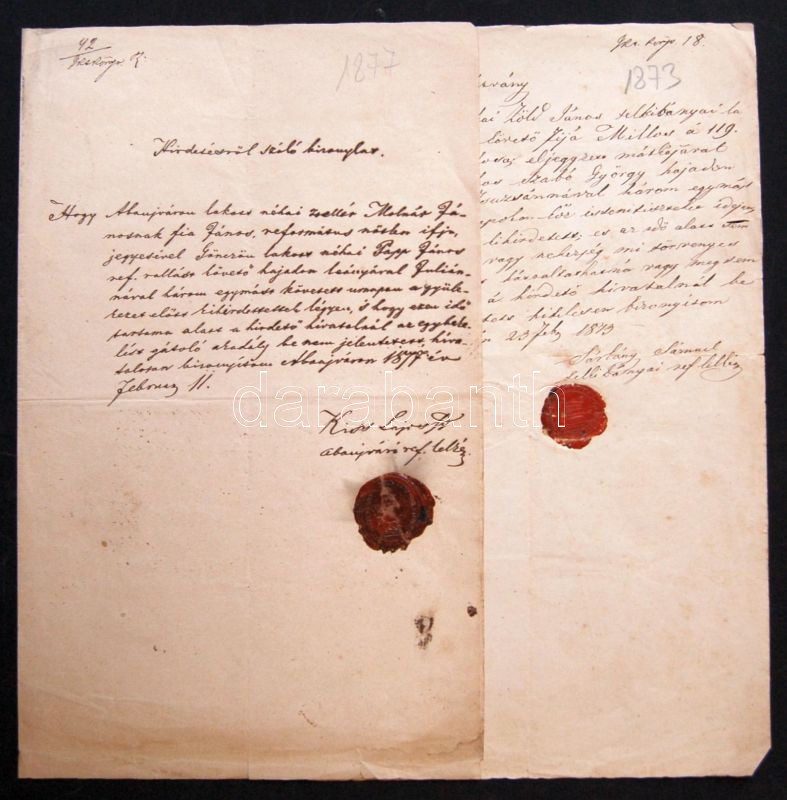 42
1877
Hirdetésről szóló bizonylat.
Hogy Abaujváron lakozó néhai zsellér Molnár Já-
nosnak fia János, református nőtlen ifju,
jegyesével Gönczön lakozó néhai Papp János
ref. vallást követő hajadon leányával Julián-
nával három egymást követett urnapon a gyüle-
kezet előtt kihirdettettek légyen, s hogy ezen idő
tartama alatt a hirdető hivatalnál az egybeke-
lést gátoló akadály be nem jelentetett, hiva-
talosan bizonyítom Abaujváron 1877 év
Február 11.
Kiss Lajos
abaujvári ref. lelkész
18.
1873
ai Zöld János telkibányai la
követő fija Miklos a 119.
eljegyzett mátkájával
os Szabó György hajadon
Zsuzsánnával három egymás
isteni tisztelet idején
kihirdetett; es az idő alatt sem
vagy nehezség mi törvenyes
vagy meg sem
á hirdető hivatalnál be
hitelesen bizonyitom
n 23 Feb 1873
Sárkány Sámuel
telkibányai ref lelkész
darabanth